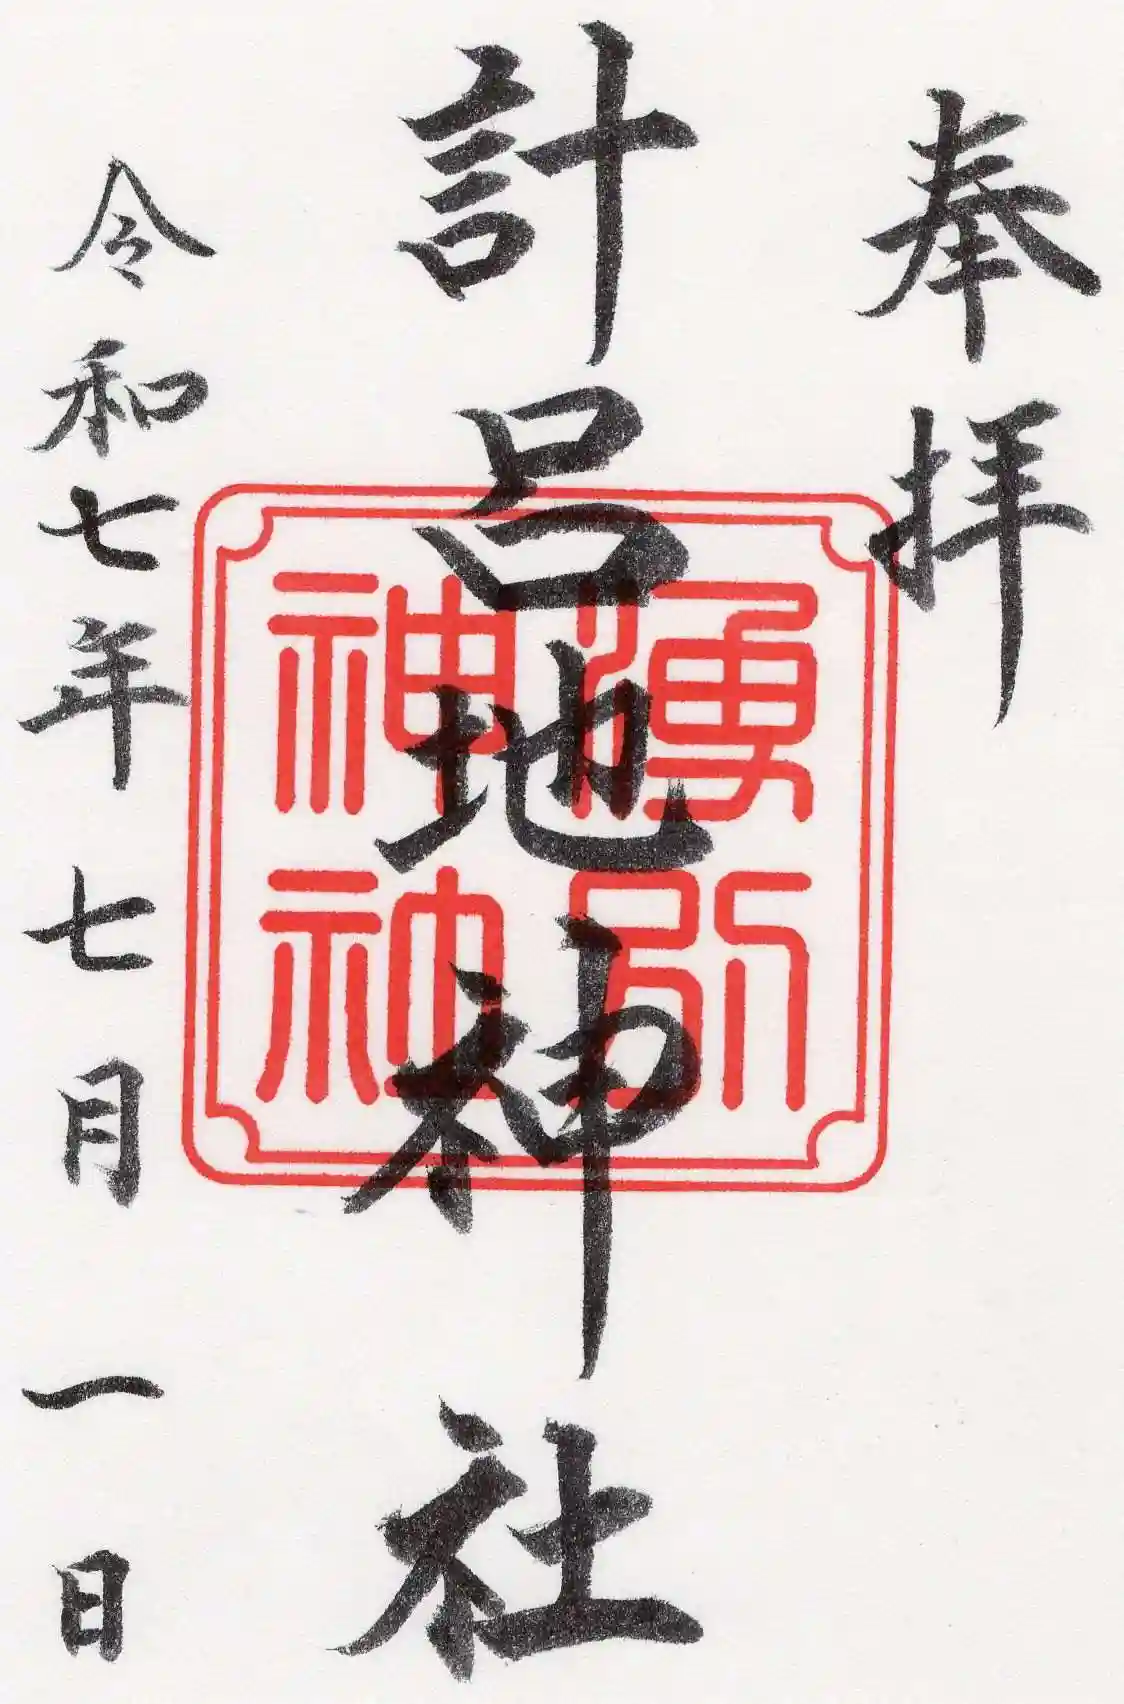 奉拝
計呂地神社
湧別
神社
令和七年七月一日